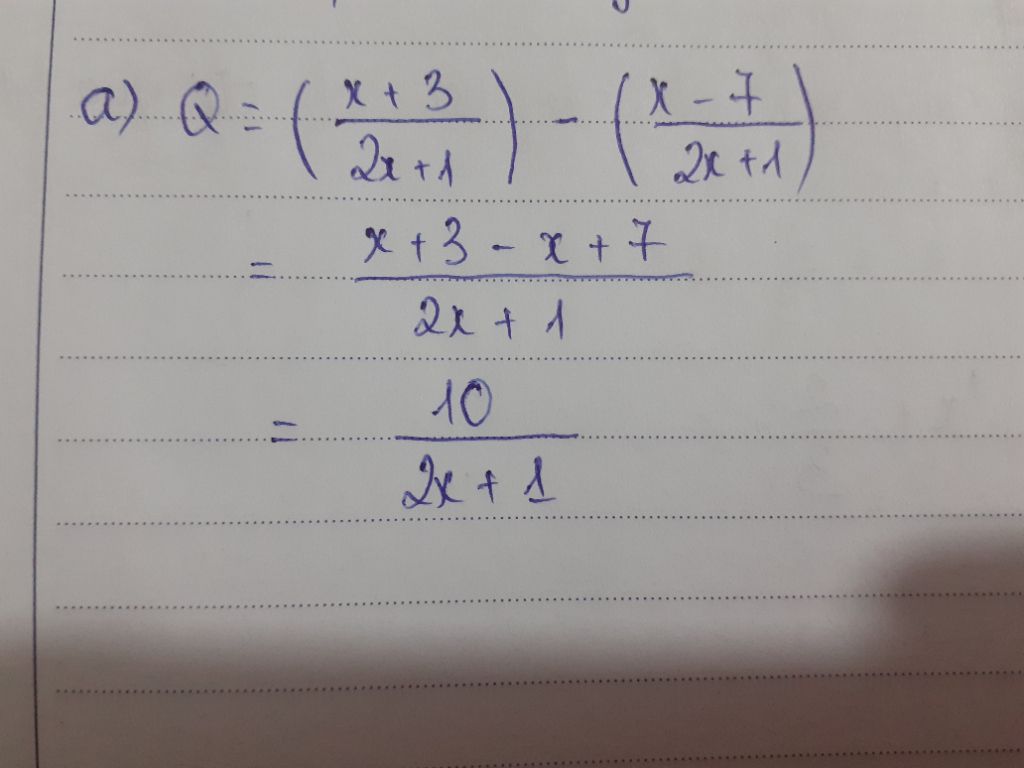 a) Q = ( (x + 3)/(2x + 1) ) - ( (x - 7)/(2x + 1) )
= (x + 3 - x + 7)/(2x + 1)
= 10/(2x + 1)